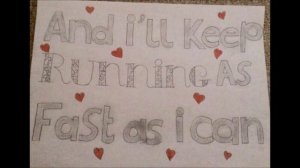 And i'll Keep
Running As
Fast as i can